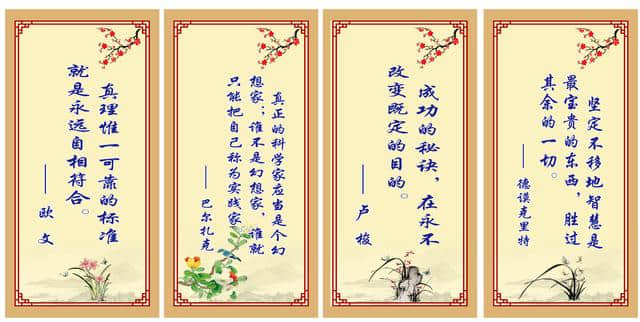 真理惟一可靠的标准
就是永远自相符合。
——欧文
真正的科学家应当是个幻
想家；谁不是幻想家，谁就
只能把自己称为实践家。
——巴尔扎克
成功的秘诀，在永不
改变既定的目的。
——卢梭
坚定不移地智慧是
最宝贵的东西，胜过
其余的一切。
——德谟克里特